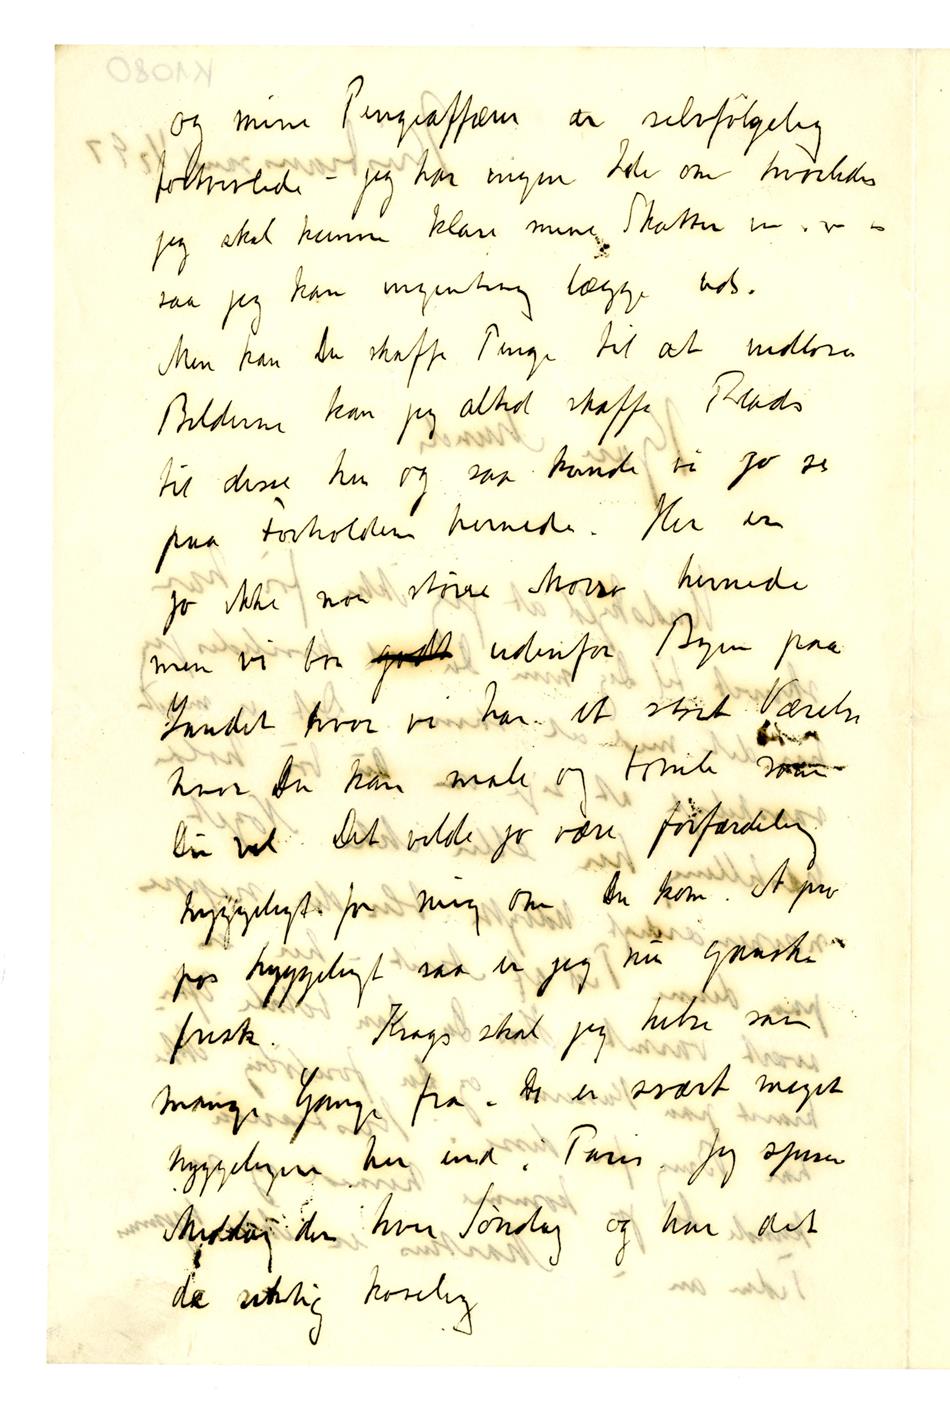 og mine Pengeaffærer er selvfölgelig
fortvivlede – jeg har ingen Ide om hvorledes
jeg skal kunne klare mine Skatter
saa jeg kan ingenting lægge ud.
Men kan Du skaffe Penge til at indløse
Billderne kan jeg altid skaffe Plads
til disse her og saa kunde vi jo se
paa Forholdene hernede. Her er
jo ikke noe større Moro hernede
men vi bor godt udenfor Byen paa
Landet hvor vi har et stort Værelse
hvor Du kan male og tomle som
Du vil Det vilde jo være forfærdelig
hyggeligt for mig om Du kom. A pro
pos hyggeligt saa er jeg nu ganske
frisk. Krogs skal jeg hilse saa
mange Gange fra. De er svært meget
hyggeligere her end i Paris. Jeg spiser
Middag der hver Søndag og har det
da rektig koselig
K1080